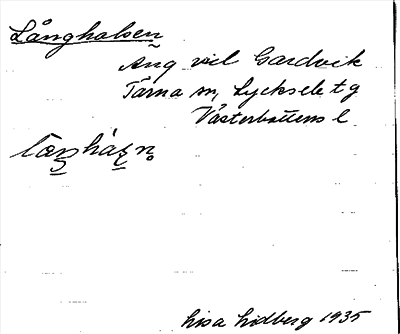 Långhalsen
Äng vid Gardvik
Tärna sn, Lycksele tg
Västerbottens l.
Lisa Lidberg 1935